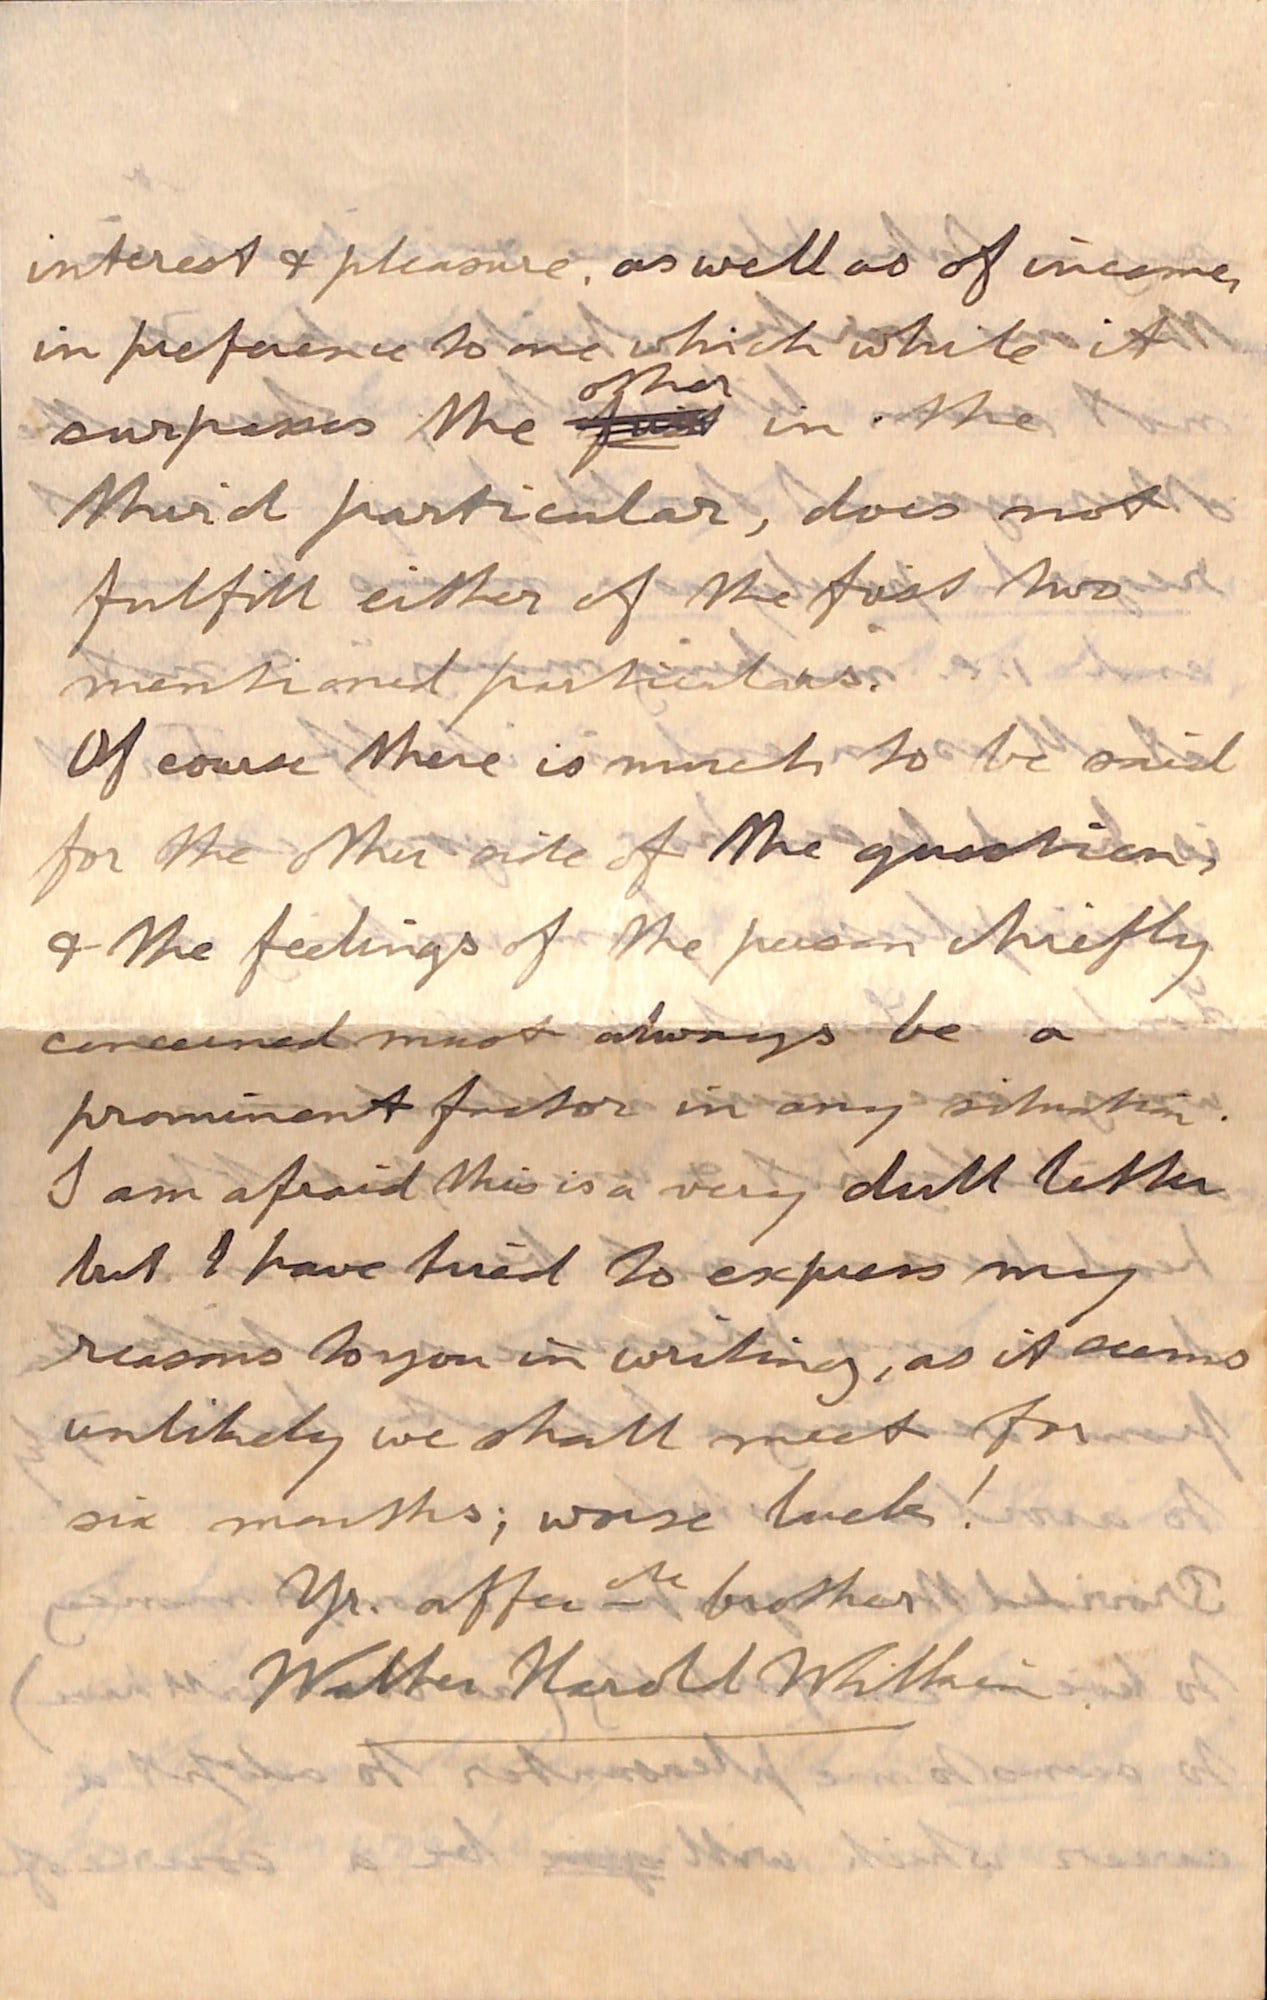 interest & pleasure, as well as of income,
in preference to one which while it
other
surpasses the first in the
third particular, does not
fulfill either of the first two
mentioned particulars.
Of course there is much to be said
for the other side of the question,
& the feelings of the person chiefly
concerned must always be a
prominent factor in any situation.
I am afraid this is a very dull letter
but I have tried to express my
reasons to you in writing, as it seems
unlikely we shall meet for
six months; worse luck!
Yr. affec ate brother
Walter Harold Wilkin